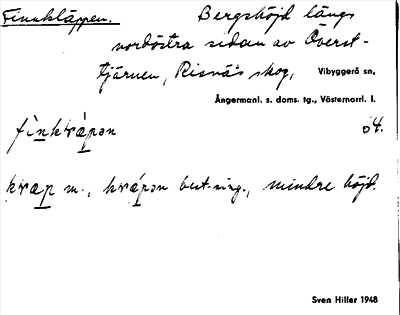 Finnkläppen. Bergshöjd längs
nordöstra sidan av Överst-
tjärnen, Risnäs skog, Vibyggerå sn,
Ångermanl. s. doms. tg., Västernorrl. l.
fìnkrápən 04.
krap m., krápən best. sing., mindre höjd.
Sven Hiller 1948